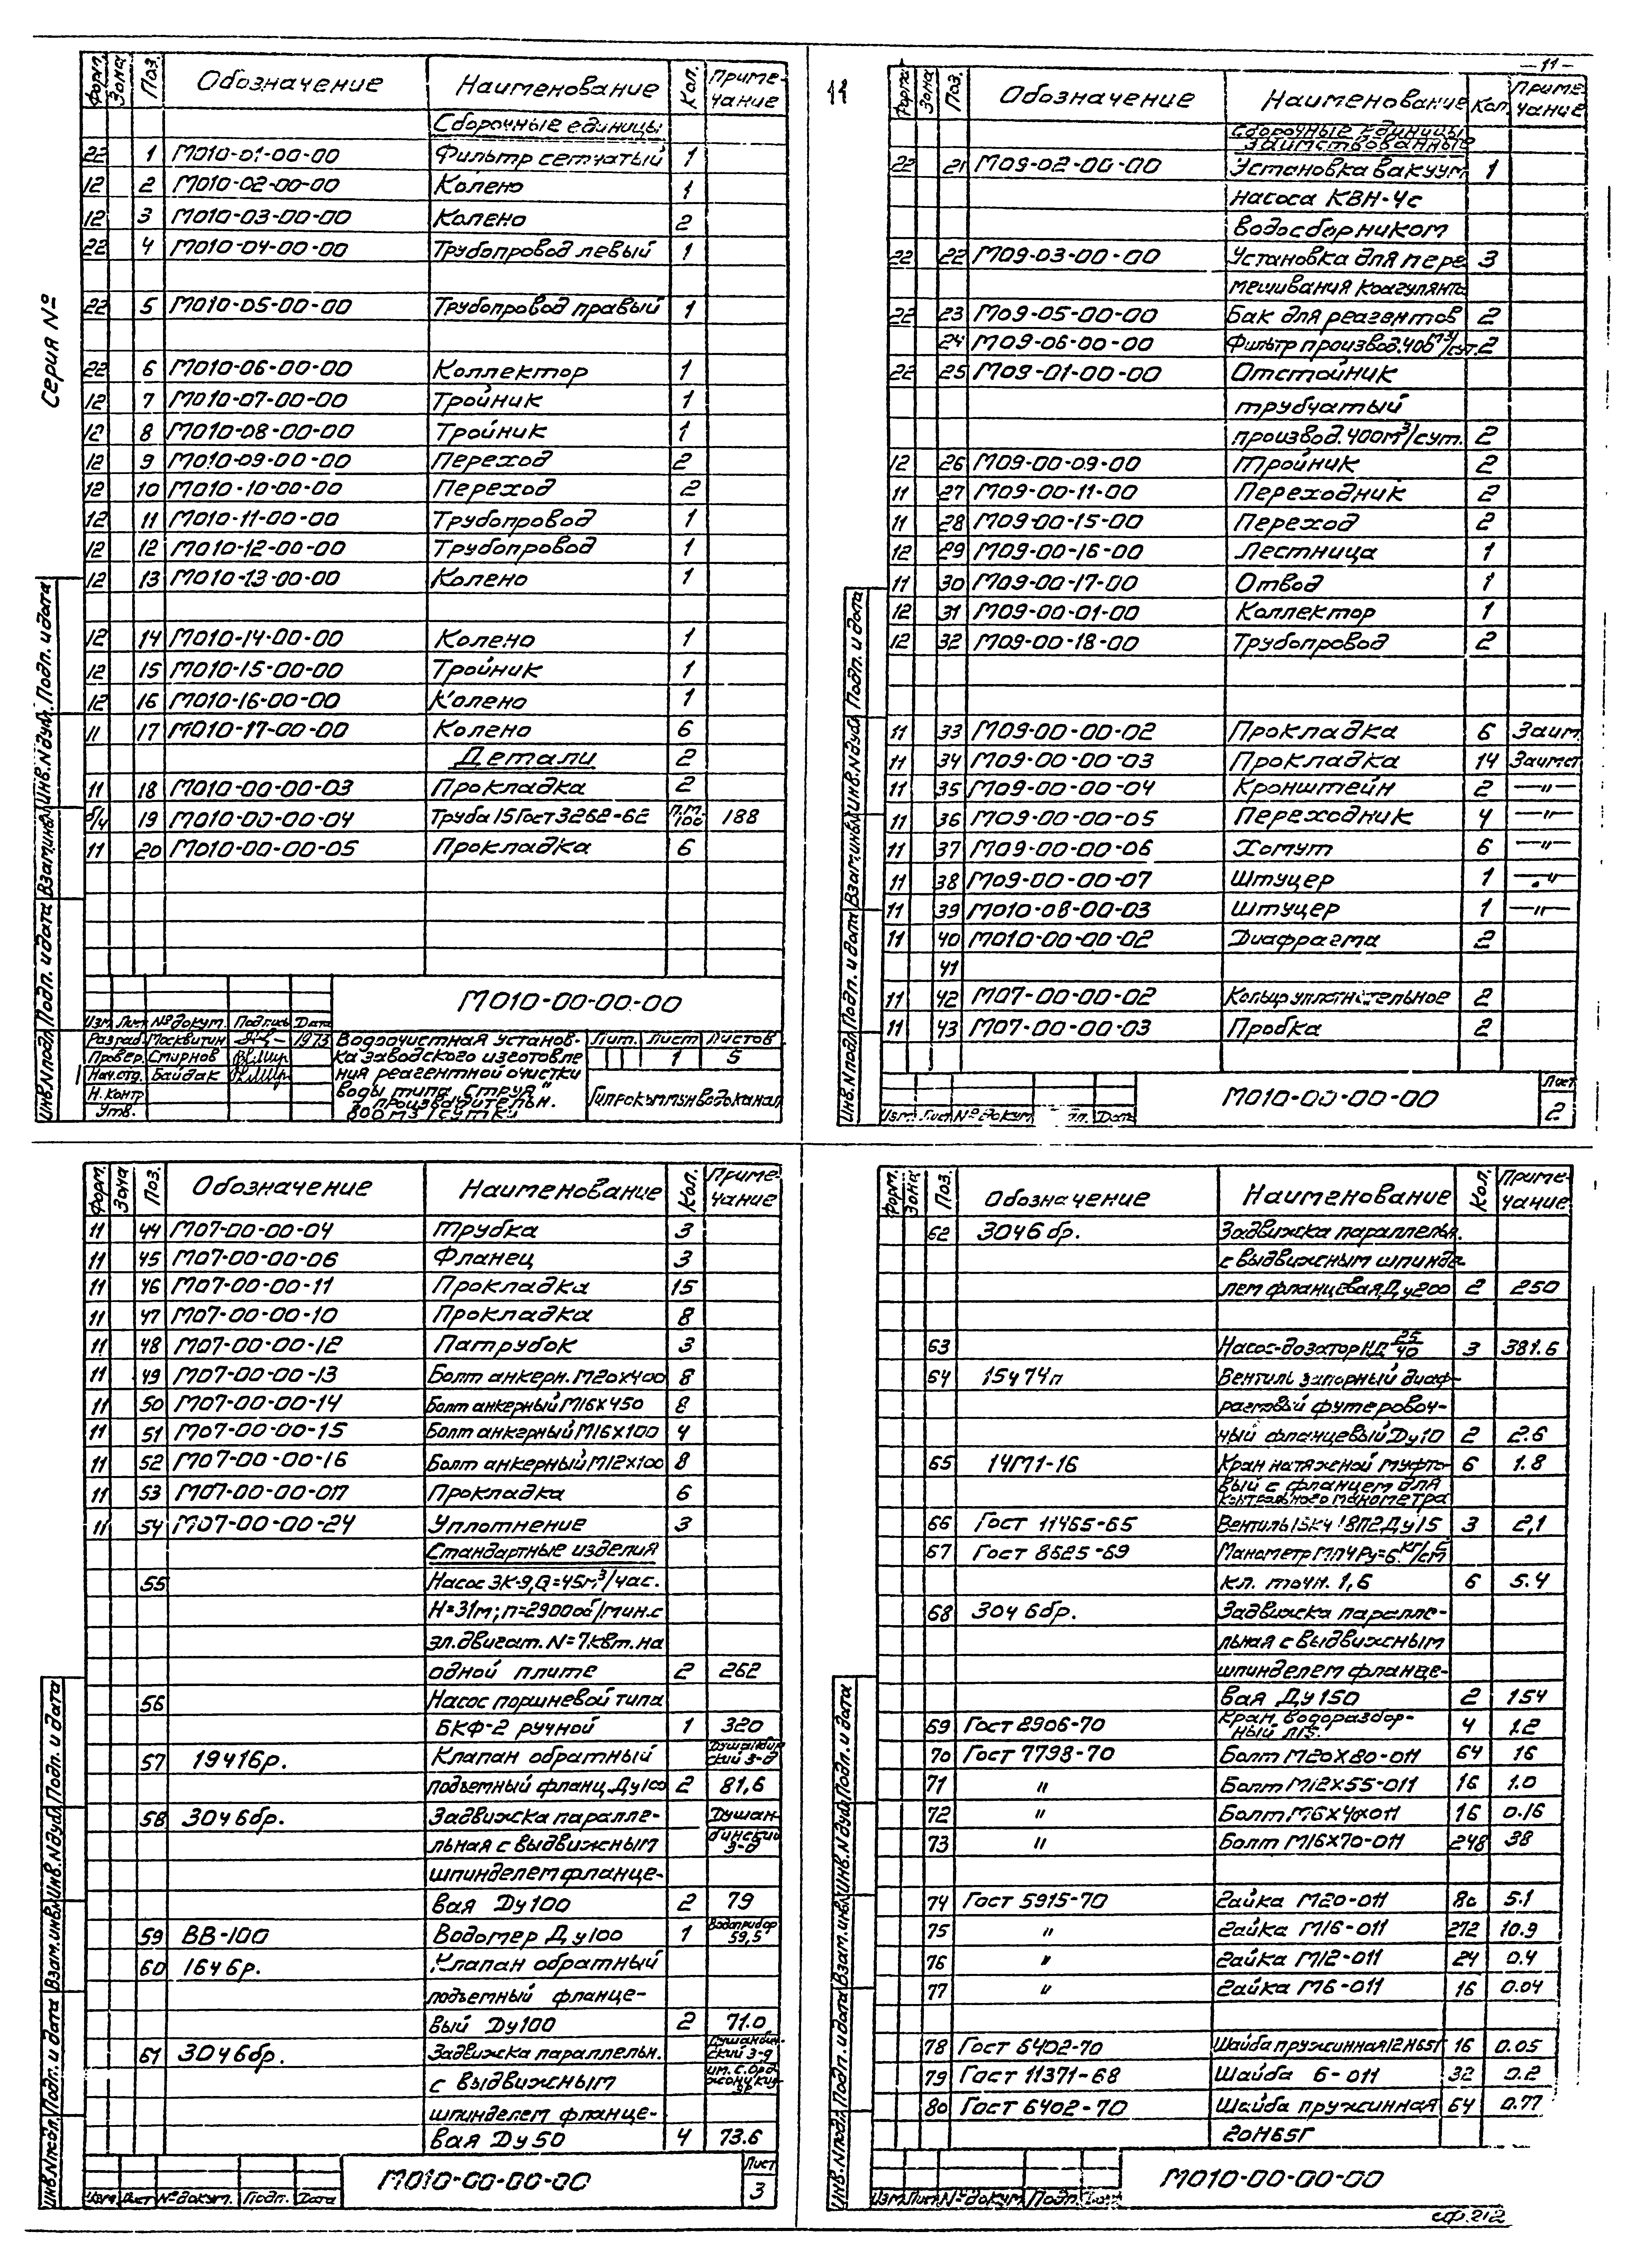 Серия №
Форм. Зона Поз. Обозначение Наименование Кол. Приме-
чание
Сборочные единицы
22 1 М010-01-00-00 Фильтр сетчатый 1
12 2 М010-02-00-00 Колено 1
12 3 М010-03-00-00 Колено 2
22 4 М010-04-00-00 Трубопровод левый 1
22 5 М010-05-00-00 Трубопровод правый 1
22 6 М010-06-00-00 Коллектор 1
12 7 М010-07-00-00 Тройник 1
12 8 М010-08-00-00 Тройник 1
12 9 М010-09-00-00 Переход 2
12 10 М010-10-00-00 Переход 2
12 11 М010-11-00-00 Трубопровод 1
12 12 М010-12-00-00 Трубопровод 1
12 13 М010-13-00-00 Колено 1
12 14 М010-14-00-00 Колено 1
12 15 М010-15-00-00 Тройник 1
12 16 М010-16-00-00 Колено 1
11 17 М010-17-00-00 Колено 6
Детали 2
11 18 М010-00-00-03 Прокладка 2
б/ч 19 М010-00-00-04 Труба 15 Гост 3262-62 п.м. 100 188
11 20 М010-00-00-05 Прокладка 6
Инв.N подл. Подп. и дата Взам.инв.N Инв.N дубл. Подп. и дата
М010-00-00-00
Изм. Лист № докум. Подпись Дата
Разраб. Москвитин 1973
Провер. Смирнов
Нач.отд. Байдак
Н. контр
Утв.
Водоочистная установ-
ка заводского изготовле
ния реагентной очистки
воды типа „Струя"
производительн.
800 м3/сутки
Лит. Лист Листов
1 5
Гипрокоммунводоканал
11
- 11 -
Форм. Зона Поз. Обозначение Наименование Кол. Приме-
чание
Сборочные единицы
заимствованные
22 21 М09-02-00-00 Установка вакуум 1
насоса КВН-4с
водосборником
22 22 М09-03-00-00 Установка для пере 3
мешивания коагулянта
22 23 М09-05-00-00 Бак для реагентов 2
24 М09-06-00-00 Фильтр производ.400м3/сут. 2
22 25 М09-01-00-00 Отстойник
трубчатый
производ.400м3/сут. 2
12 26 М09-00-09-00 Тройник 2
11 27 М09-00-11-00 Переходник 2
11 28 М09-00-15-00 Переход 2
12 29 М09-00-16-00 Лестница 1
11 30 М09-00-17-00 Отвод 1
12 31 М09-00-01-00 Коллектор 1
12 32 М09-00-18-00 Трубопровод 2
11 33 М09-00-00-02 Прокладка 6 Заим.
11 34 М09-00-00-03 Прокладка 14 Заимст
11 35 М09-00-00-04 Кронштейн 2 —"—
11 36 М09-00-00-05 Переходник 4 —"—
11 37 М09-00-00-06 Хомут 6 —"—
11 38 М09-00-00-07 Штуцер 1 —"
11 39 М010-08-00-03 Штуцер 1 —"—
11 40 М010-00-00-02 Диафрагма 2
41
11 42 М07-00-00-02 Кольцо уплотнительное 2
11 43 М07-00-00-03 Пробка 2
Инв.N подл. Подп. и дата Взам.инв.N Инв.N дубл. Подп. и дата
Изм. Лист № докум. Дата
М010-00-00-00
Лист
2
Форм. Зона Поз. Обозначение Наименование Кол. Приме-
чание
11 44 М07-00-00-04 Трубка 3
11 45 М07-00-00-06 Фланец 3
11 46 М07-00-00-11 Прокладка 15
11 47 М07-00-00-10 Прокладка 8
11 48 М07-00-00-12 Патрубок 3
11 49 М07-00-00-13 Болт анкерн. М20х400 8
11 50 М07-00-00-14 Болт анкерный М16х450 8
11 51 М07-00-00-15 Болт анкерный М16х100 4
11 52 М07-00-00-16 Болт анкерный М12х100 8
11 53 М07-00-00-017 Прокладка 6
11 54 М07-00-00-24 Уплотнение 3
Стандартные изделия
55 Насос 3К-9, Q=45м3/час.
Н=31м; n=2900об/мин.с
эл.двигат. N=7квт. на
одной плите 2 262
56 Насос поршневой типа
БКФ-2 ручной 1 320
57 19ч16р. Клапан обратный
подъемный фланц. Ду100 2 81,6
58 30ч6бр. Задвижка паралле- Душан-
льная с выдвижным бинский
з-д
шпинделем фланце-
вая Ду100 2 79
59 ВВ-100 Водомер Ду100 1 Водоприбор
59,5
60 16ч6р. Клапан обратный
подъемный фланце-
вый Ду100 2 71.0
61 30ч6бр. Задвижка параллельн.
с выдвижным
шпинделем фланце-
вая Ду50 4 73.6
Инв.N подл. Подп. и дата Взам.инв.N Инв.N дубл. Подп. и дата
Изм. Лист № докум. Подп. Дата
М010-00-00-00
Лист
3
Форм. Зона Поз. Обозначение Наименование Кол. Приме-
чание
62 30ч6бр. Задвижка параллельн.
с выдвижным шпинде-
лем фланцевая Ду200 2 250
63 Насос-дозатор НД 25/40 3 381.6
64 15ч74п Вентиль запорный диаф-
рагмовый футеровоч-
ный фланцевый Ду10 2 2.6
65 14М1-16 Кран натяжной муфто- 6 1.8
вый с фланцем для
контрольного манометра
66 Гост 11465-65 Вентиль 15кч 18П2 Ду15 3 2,1
67 Гост 8625-69 Манометр МП4 Ру=6кг/см2
кл. точн. 1,6 6 5.4
68 30ч6бр. Задвижка паралле-
льная с выдвижным
шпинделем фланце-
вая Ду150 2 154
69 Гост 8906-70 Кран водоразбор- 4 1.2
ный
70 Гост 7798-70 Болт М20х80-011 64 16
71 " Болт М12х55-011 16 1.0
72 " Болт М6х40х011 16 0.16
73 " Болт М16х70-011 248 38
74 Гост 5915-70 Гайка М20-011 80 5.1
75 " Гайка М16-011 272 10.9
76 " Гайка М12-011 24 0.4
77 " Гайка М6-011 16 0.04
78 Гост 6402-70 Шайба пружинная 12Н65Г 16 0.05
79 Гост 11371-68 Шайба 6-011 32 0.2
80 Гост 6402-70 Шайба пружинная 64 0.77
20Н65Г
Инв.N подл. Подп. и дата Взам.инв.N Инв.N дубл. Подп. и дата
Изм. Лист № докум. Подп.
М010-00-00-00
сф.212